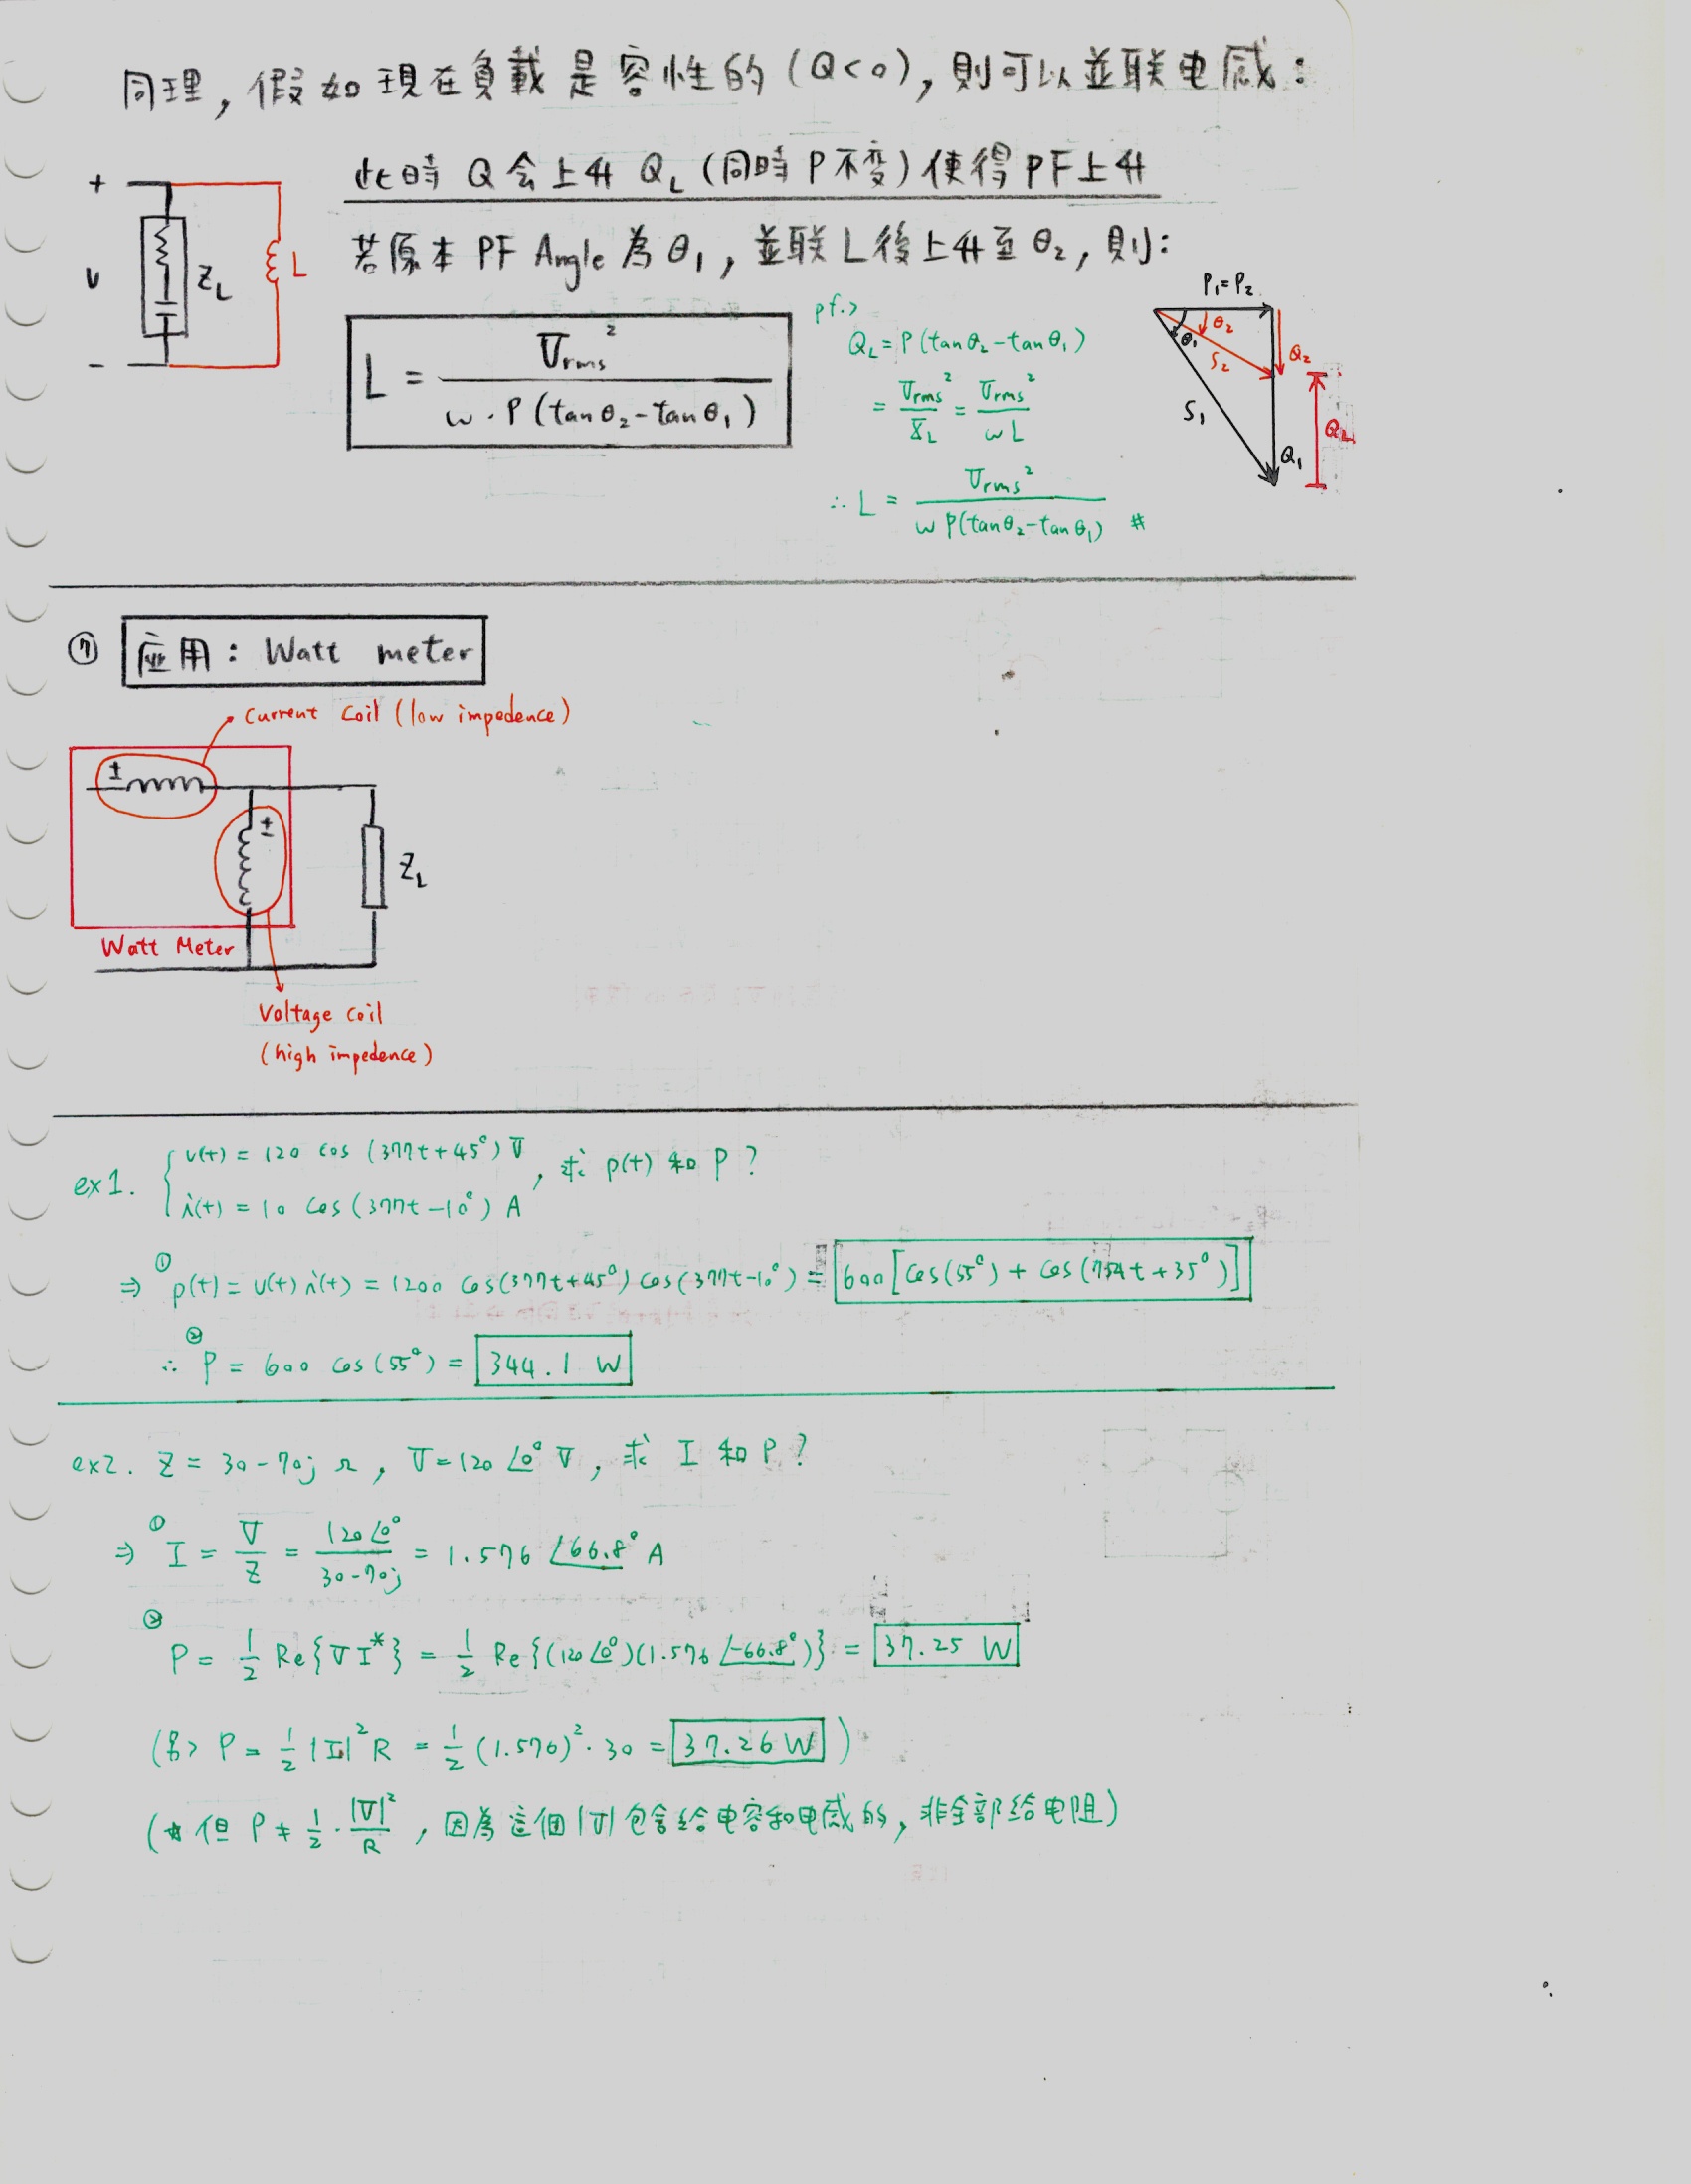 同理，假如現在負載是容性的(Q<0)，則可以並联电感：
此時 Q 会上升 Q_L (同時 P 不変) 使得 PF 上升
若原本 PF Angle 為 θ₁，並联 L 後上升至 θ₂，則：
+
v
-
Z_L
L
L = Vrms² / (w · P (tan θ₂ - tan θ₁))
pf.>
Q_L = P (tan θ₂ - tan θ₁)
= Vrms² / X_L = Vrms² / wL
∴ L = Vrms² / (w P (tan θ₂ - tan θ₁)) #
P₁=P₂
θ₂
θ₁
S₂
Q₂
S₁
Q_L
Q₁
⑦ 应用：Watt meter
Current Coil (low impedence)
±
±
Z_L
Watt Meter
Voltage coil
(high impedence)
ex1. { v(t) = 120 cos (377t+45°) V
i(t) = 10 cos (377t-10°) A ，求 p(t) 和 P？
⇒ ① p(t) = v(t) i(t) = 1200 cos(377t+45°) cos(377t-10°) = 600 [cos(55°) + cos(754t+35°)]
∴ ② P = 600 cos(55°) = 344.1 W
ex2. Z = 30-70j Ω，V = 120∠0° V，求 I 和 P？
⇒ ① I = V/Z = 120∠0° / (30-70j) = 1.576 ∠66.8° A
② P = 1/2 Re{V I*} = 1/2 Re{(120∠0°)(1.576 ∠-66.8°)} = 37.25 W
(另> P = 1/2 |I|² R = 1/2 (1.576)² · 30 = 37.26 W)
(★ 但 P ≠ 1/2 · |V|²/R，因為這個 |V| 包含給电容和电感的，非全部給电阻)